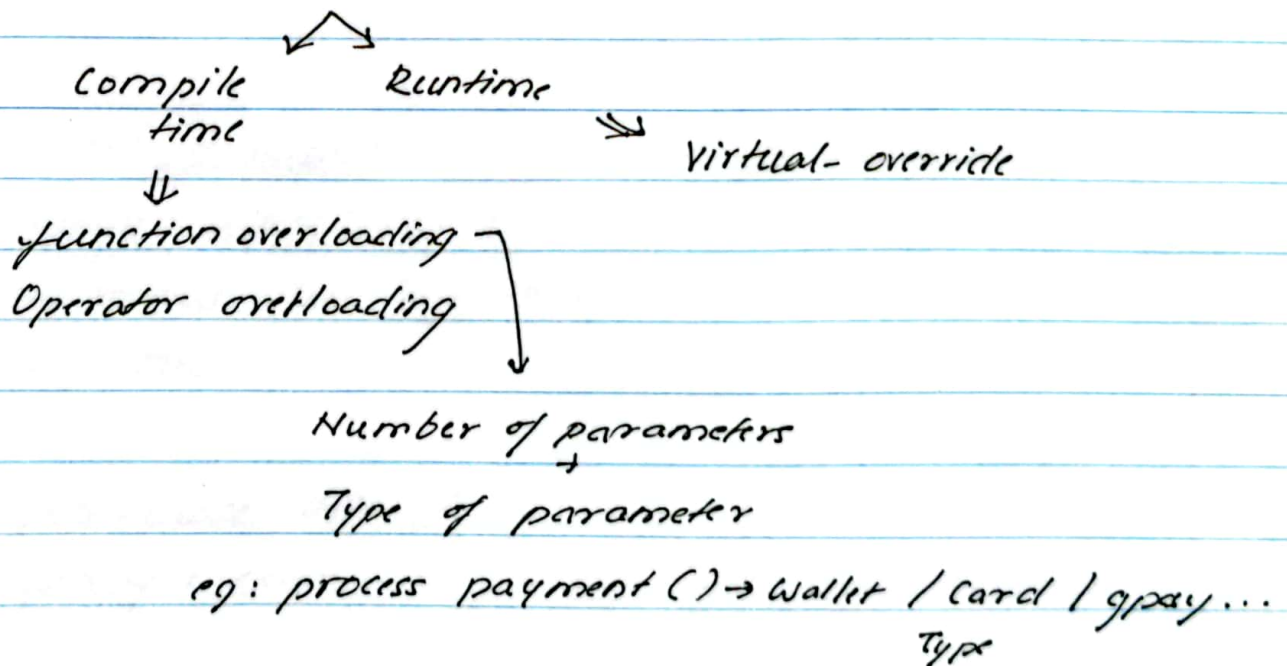 Compile Runtime
time
Virtual- override
function overloading
Operator overloading
Number of parameters
Type of parameter
eg: process payment () → Wallet / Card / gpay...
Type